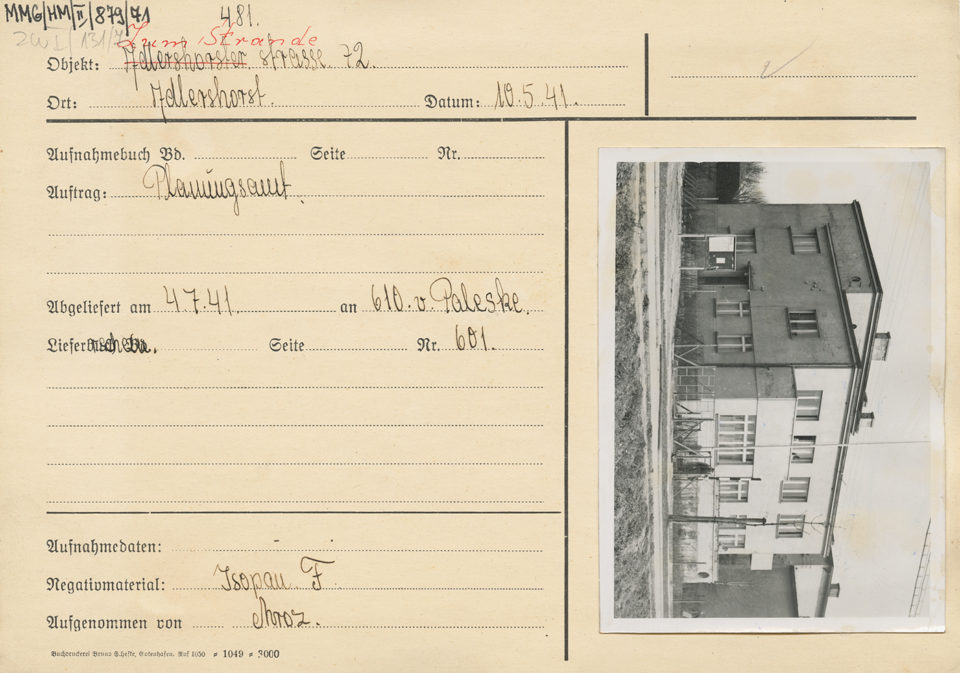 MMG/HM/II/879/71
481.
ZW I/131/7
Zum Strande
Objekt: Adlershorster strasse 72.
Ort: Adlershorst. Datum: 10.5.41.
Aufnahmebuch Bd. Seite Nr.
Auftrag: Planungsamt.
Abgeliefert am 4.7.41 an 610. v. Paleske.
Liefer Seite Nr. 601.
Aufnahmedaten:
Negativmaterial: Isopan F.
Aufgenommen von Mroz.
Buchdruckerei Bruno Gotenhafen. Ruf 1050 ≠ 1049 ≠ 3000